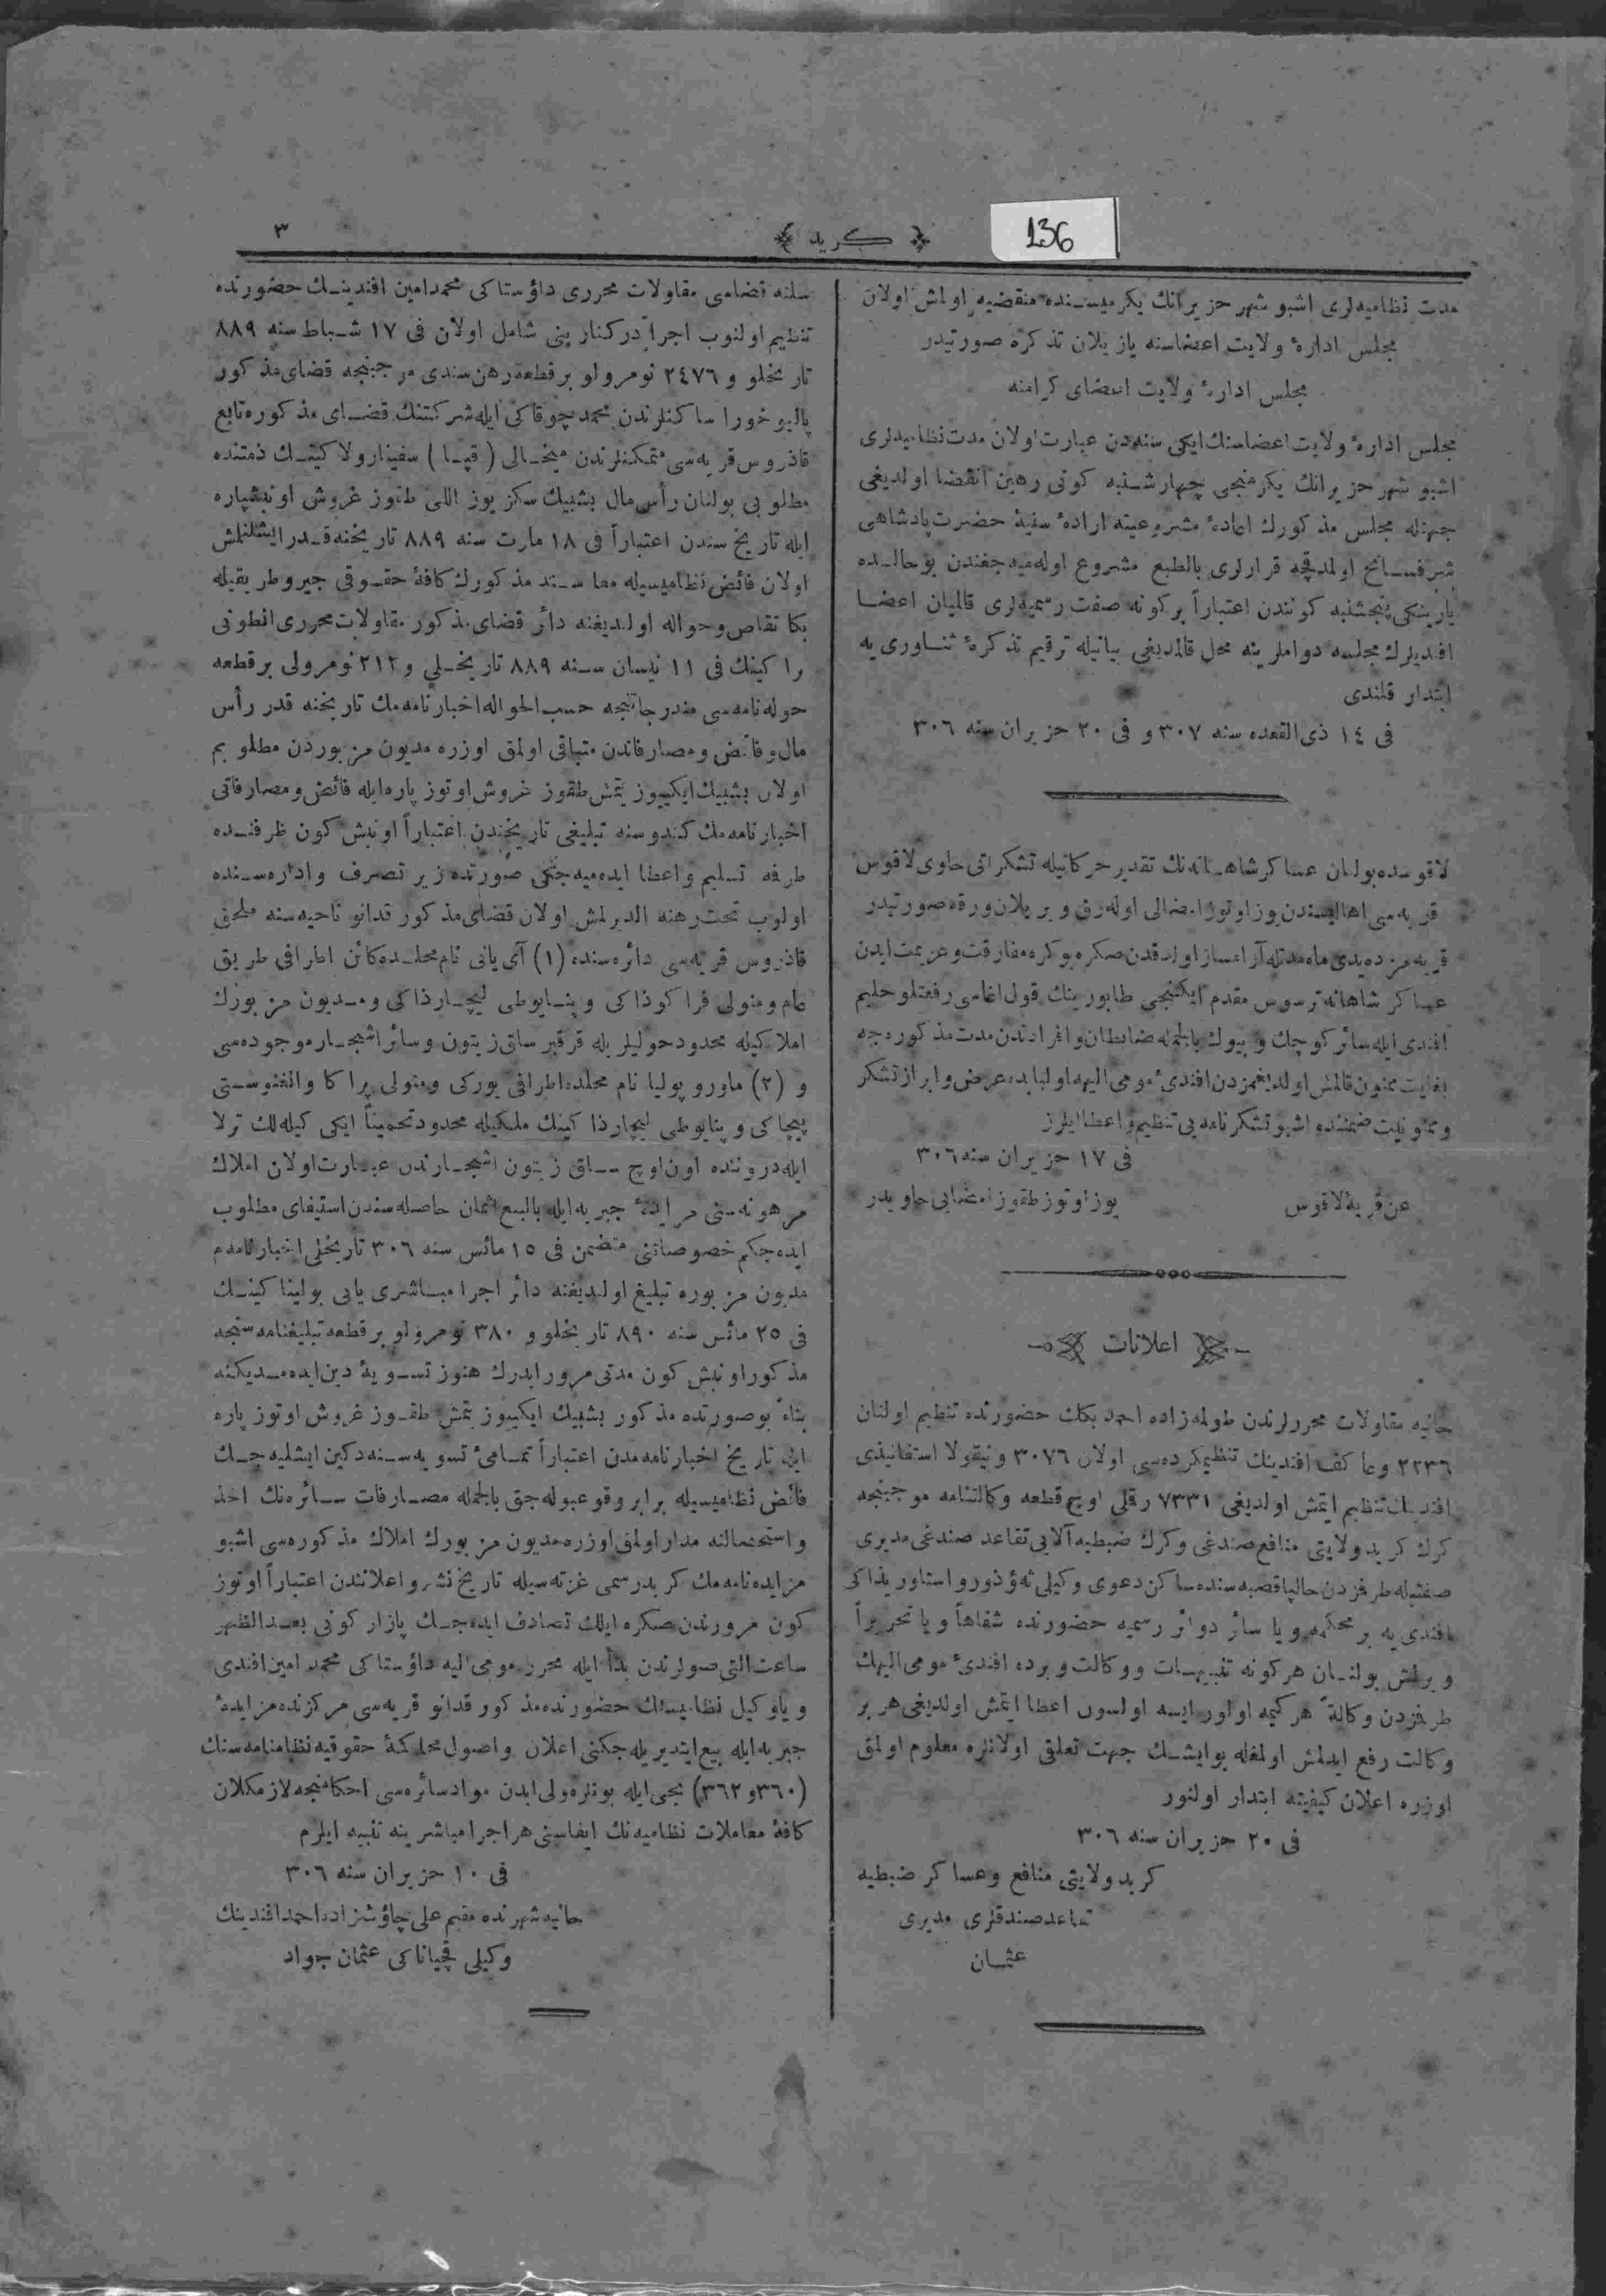 136
﴿ كريد ﴾
٣
مدت نظاميه‌لرى اشبو شهر حزيرانك يكرميسنده منقضيه اولمش اولان
مجلس ادارهٔ ولايت اعضاسنه يازيلان تذكره صورتيدر
مجلس ادارهٔ ولايت اعضاى كرامنه
مجلس ادارهٔ ولايت اعضاسنك ايكى سنه‌دن عبارت اولان مدت نظاميه‌لرى
اشبو شهر حزيرانك يكرمنجى چهارشنبه كونى رهين انقضا اولديغى
جهتله مجلس مذكورك اعادهٔ مشروعيته ارادهٔ سنيهٔ حضرت پادشاهى
شرفسانح اولمدقجه قرارلرى بالطبع مشروع اوله‌ميه‌جغندن بوحالده
يارينكى پنجشنبه كونندن اعتباراً بركونه صفت رسميه‌لرى قالميان اعضا
افنديلرك مجلسه دواملرينه محل قالمديغى بيانيله ترقيم تذكرهٔ ثناورى يه
ابتدار قلندى
فى ١٤ ذى القعده سنه ٣٠٧ و فى ٢٠ حزيران سنه ٣٠٦
لاقوسده بولنان عساكر شاهانه‌نك تقدير حركاتيله تشكراتى حاوى لاقوس
قريه‌سى اهاليسندن يوز اوتوز امضالى اوله‌رق ويريلان ورقه صورتيدر
قريه‌مزده يدى ماه مدتله آرامساز اولدقدن صكره بوكره مفارقت وعزيمت ايدن
عساكر شاهانه ترسوس مقدم ايكنجى طابورينك قول اغاسى رفعتلو حليم
افندى ايله سائر كوچك و بيوك بالجمله ضابطان وافرادندن مدت مذكوره‌جه
بغايت ممنون قالمش اولديغمزدن افندىٔ مومى اليهه اولبابده عرض وابراز تشكر
وممنونيت ضمننده اشبو تشكرنامه‌يى تنظيم و اعطا ايلرز
فى ١٧ حزيران سنه ٣٠٦
عن قريهٔ لاقوس
يوز اوتوز طقوز امضايى حاويدر
اعلانات
حانيه مقاولات محررلرندن طولمه‌زاده احمد بكك حضورنده تنظيم اولنان
٢٢٣٦ وعاكف افندينك تنظيمكرده‌سى اولان ٣٠٧٦ و نيقولا استفانيذى
افندينك تنظيم ايتمش اولديغى ٧٣٣١ رقملى اوچ قطعه وكالتنامه موجبنجه
كرك كريد ولايتى منافع صندغى وكرك ضبطيه آلايى تقاعد صندغى مديرى
صفتيله طرفمزدن حالپا قصبه‌سنده ساكن دعوى وكيلى ئه‌ؤذورو استاوريذاكى
افندى يه بر محكمه و يا سائر دوائر رسميه حضورنده شفاهاً و يا تحريراً
ويرلمش بولنان هركونه تنبيهات ووكالت و برده افندىٔ مومى اليهك
طرفمزدن وكالةً هر كيمه اولور ايسه اولسون اعطا ايتمش اولديغى هر بر
وكالت رفع ايدلمش اولمغله بوايشك جهت تعلقى اولانلره معلوم اولمق
اوزره اعلان كيفيته ابتدار اولنور
فى ٢٠ حزيران سنه ٣٠٦
كريد ولايتى منافع وعساكر ضبطيه
تقاعد صندقلرى مديرى
عثمان
سلنه قضاسى مقاولات محررى داؤستاكى محمد امين افندينك حضورنده
تنظيم اولنوب اجرا دركنارينى شامل اولان فى ١٧ شباط سنه ٨٨٩
تاريخلو و ٢٤٧٦ نومرولو برقطعه رهن سندى موجبنجه قضاى مذكور
پاليوخورا ساكنلرندن محمد چوقاكى ايله شركتنك قضاى مذكوره تابع
قاذروس قريه‌سى متمكنلرندن ميخالى ( قپا ) سفينارولاكينك ذمتنده
مطلوبى بولنان رأس مال بشبيك سكز يوز اللى طقوز غروش اونبشپاره
ايله تاريخ سندن اعتباراً فى ١٨ مارت سنه ٨٨٩ تاريخنه قدر ايشلنلمش
اولان فائض نظاميسيله معا سند مذكورك كافهٔ حقوقى جيرو طريقيله
بكا تقاص وحواله اولديغنه دائر قضاى مذكور مقاولات محررى انطونى
راكينك فى ١١ نيسان سنه ٨٨٩ تاريخلى و ٢١٢ نومرولى برقطعه
حوله‌نامه‌سى مندرجاتنجه حسب الحواله اخبارنامه‌مك تاريخنه قدر رأس
مال وفائض ومصارفاتدن متباقى اولمق اوزره مديون مزبوردن مطلوبم
اولان بشبيك ايكييوز يتمش طقوز غروش اوتوز پاره ايله فائض ومصارفاتى
اخبارنامه‌مك كندوسنه تبليغى تاريخندن اعتباراً اونبش كون ظرفنده
طرفمه تسليم واعطا ايده‌ميه‌جكى صورتده زير تصرف واداره‌سنده
اولوب تحت رهنه الديرلمش اولان قضاى مذكور قدانو ناحيه‌سنه ملحق
قاذروس قريه‌سى دائره‌سنده (١) آى يانى نام محلده كائن اطرافى طريق
عام ومنولى فراكوذاكى و پنايوطى ليچارذاكى ومديون مزبورك
املاكيله محدود حوليلر يله قرقبر ساق زيتون وسائر اشجار موجوده‌سى
و (٢) ماورو پوليا نام محلده اطرافى يوركى ومنولى پراكا والغنوستى
پيچاكى و پنايوطى ليچارذاكينك ملكيله محدود تخميناً ايكى كيله‌لك ترلا
ايله دروننده اون اوچ ساق زيتون اشجارندن عبارت اولان املاك
مرهونه‌سنى مزايدهٔ جبريه ايله بالبيع اثمان حاصله‌سندن استيفاى مطلوب
ايده‌جكم خصوصاتنى متضمن فى ١٥ مائس سنه ٣٠٦ تاريخلى اخبارنامه‌م
مديون مزبوره تبليغ اولديغنه دائر اجرا مباشرى يانى بوليناكينك
فى ٢٥ مائس سنه ٨٩٠ تاريخلو و ٣٨٠ نومرولو برقطعه تبليغنامه‌سنجه
مذكور اونبش كون مدتى مرور ايدرك هنوز تسويهٔ دين ايده‌مديكنه
بناءً بوصورتده مذكور بشبيك ايكييوز يتمش طقوز غروش اوتوز پاره
ايله تاريخ اخبارنامه‌مدن اعتباراً تمامىٔ تسويه‌سنه دكين ايشليه‌جك
فائض نظاميسيله برابر وقوعبوله‌جق بالجمله مصارفات سائره‌نك اخذ
واستحصالنه مدار اولمق اوزره مديون مزبورك املاك مذكوره‌سى اشبو
مزايده‌نامه‌مك كريد رسمى غزته‌سيله تاريخ نشر و اعلانندن اعتباراً اوتوز
كون مرورندن صكره ايلك تصادف ايده‌جك پازار كونى بعد الظهر
ساعت التى صولرندن بدأ ايله محرر مومى اليه داؤستاكى محمد امين افندى
وياوكيل نظاميسنك حضورنده مذكور قدانو قريه‌سى مركزنده مزايدهٔ
جبريه ايله بيع ايتديريله‌جكنى اعلان واصول محاكمهٔ حقوقيه نظامنامه‌سنك
(٣٦٠ و ٣٦٢) نجى ايله بونلره ولى ايدن مواد سائره‌سى احكامنجه لازمكلان
كافهٔ معاملات نظاميه‌نك ايفاسنى هر اجرا مباشرينه تنبيه ايلرم
فى ١٠ حزيران سنه ٣٠٦
حانيه شهرنده مقيم على چاؤشزاده احمد افندينك
وكيلى قچياناكى عثمان جواد